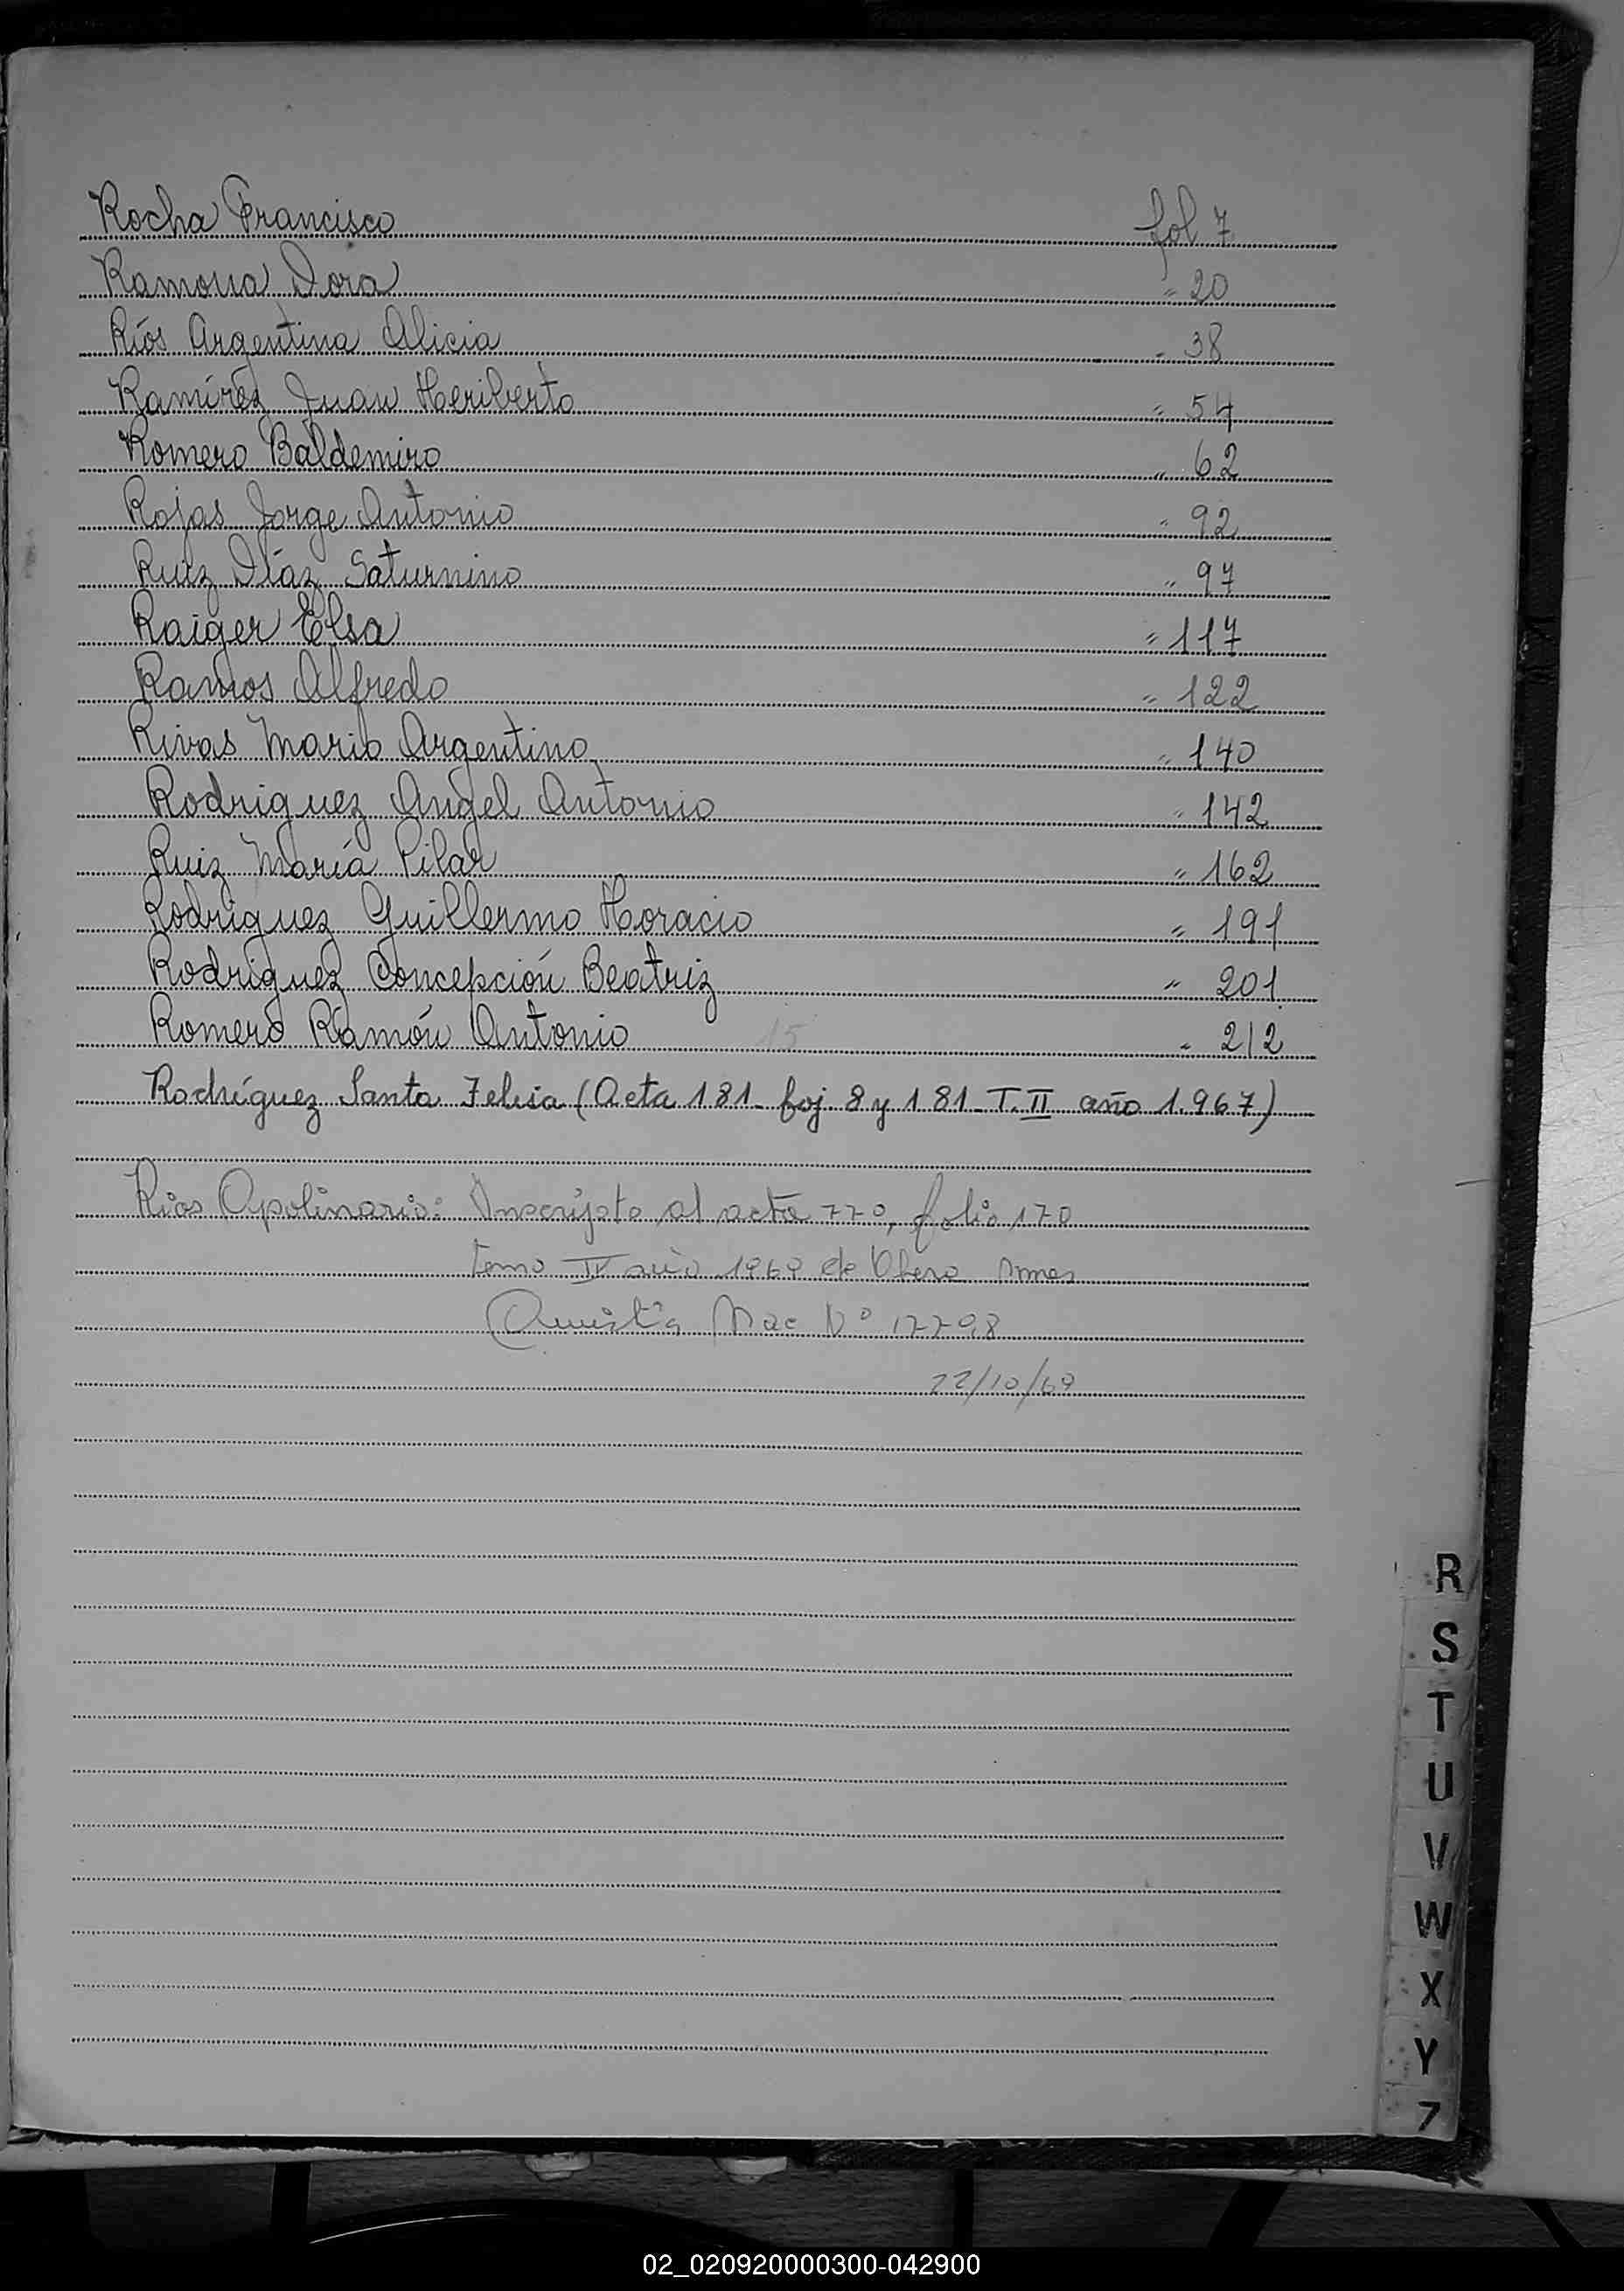 Rocha Francisco fol 7
Ramona Dora " 20
Ríos Argentina Alicia " 38
Ramírez Juan Heriberto " 54
Romero Baldemiro " 62
Rojas Jorge Antonio " 92
Ruiz Díaz Saturnino " 97
Raiger Elsa " 117
Ramos Alfredo " 122
Rivas Mario Argentino " 140
Rodriguez Angel Antonio " 142
Ruiz María Pilar " 162
Rodriguez Guillermo Horacio " 191
Rodriguez Concepción Beatriz " 201
Romero Ramón Antonio 15 " 212
Rodríguez Santa Felisa (Acta 181 - foj. 8 y 181 - T. II año 1.967)
Rios Apolinario: Inscripto al acta 770, folio 170
tomo II año 1969 de Obera Mnes
Amnistía Nac N° 17798
22/10/69
R
S
T
U
V
W
X
Y
Z
02_020920000300-042900